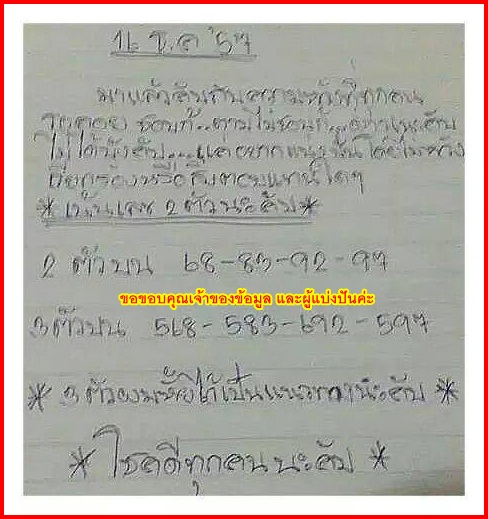 16 ธ.ค '57
มาแล้วคับกับความหวังที่ทุกคน
รอคอย ชอบก็..ตามไม่ชอบก็..อย่าแนะคับ
ไม่ได้บังคับ....แค่อยากแนะนำโดยไม่หวัง
เรียกร้องหรือสิ่งตอบแทนใดๆ
* เน้นเลข 2 ตัวนะคับ *
2 ตัวบน 68-83-92-97
ขอขอบคุณเจ้าของข้อมูล และผู้แบ่งปันค่ะ
3 ตัวบน 568-583-692-597
* 3 ตัวงมหัยได้เป็นแนวทางนะคับ *
* โชคดีทุกคนนะคับ *